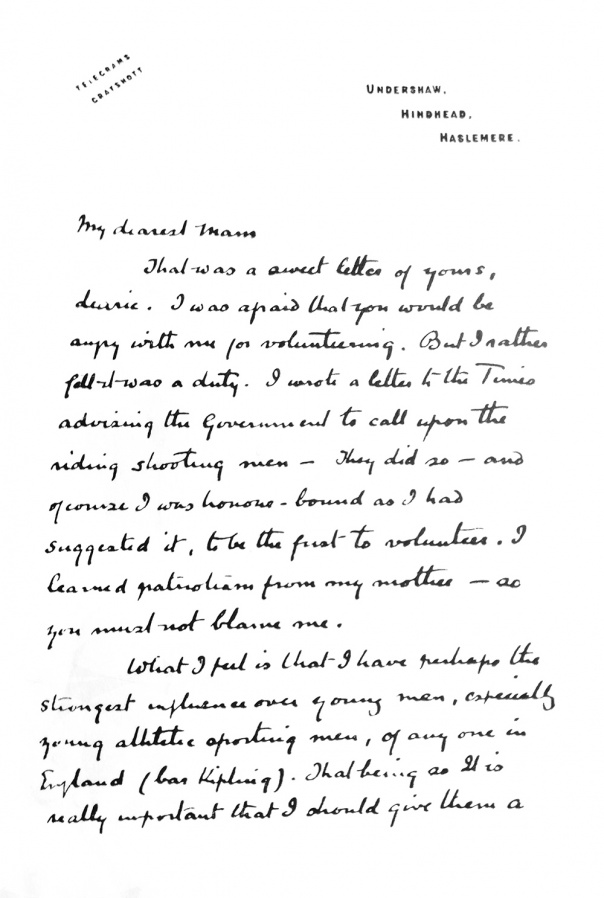 TELEGRAMS
GRAYSHOTT
UNDERSHAW,
HINDHEAD,
HASLEMERE.
My dearest Mam
That was a sweet letter of yours,
dearie. I was afraid that you would be
angry with me for volunteering. But I rather
felt it was a duty. I wrote a letter to the Times
advising the Government to call upon the
riding shooting men - They did so - and
of course I was honour-bound as I had
suggested it, to be the first to volunteer. I
learned patriotism from my mother - so
you must not blame me.
What I feel is that I have perhaps the
strongest influence over young men, especially
young athletic sporting men, of any one in
England (bar Kipling). That being so it is
really important that I should give them a